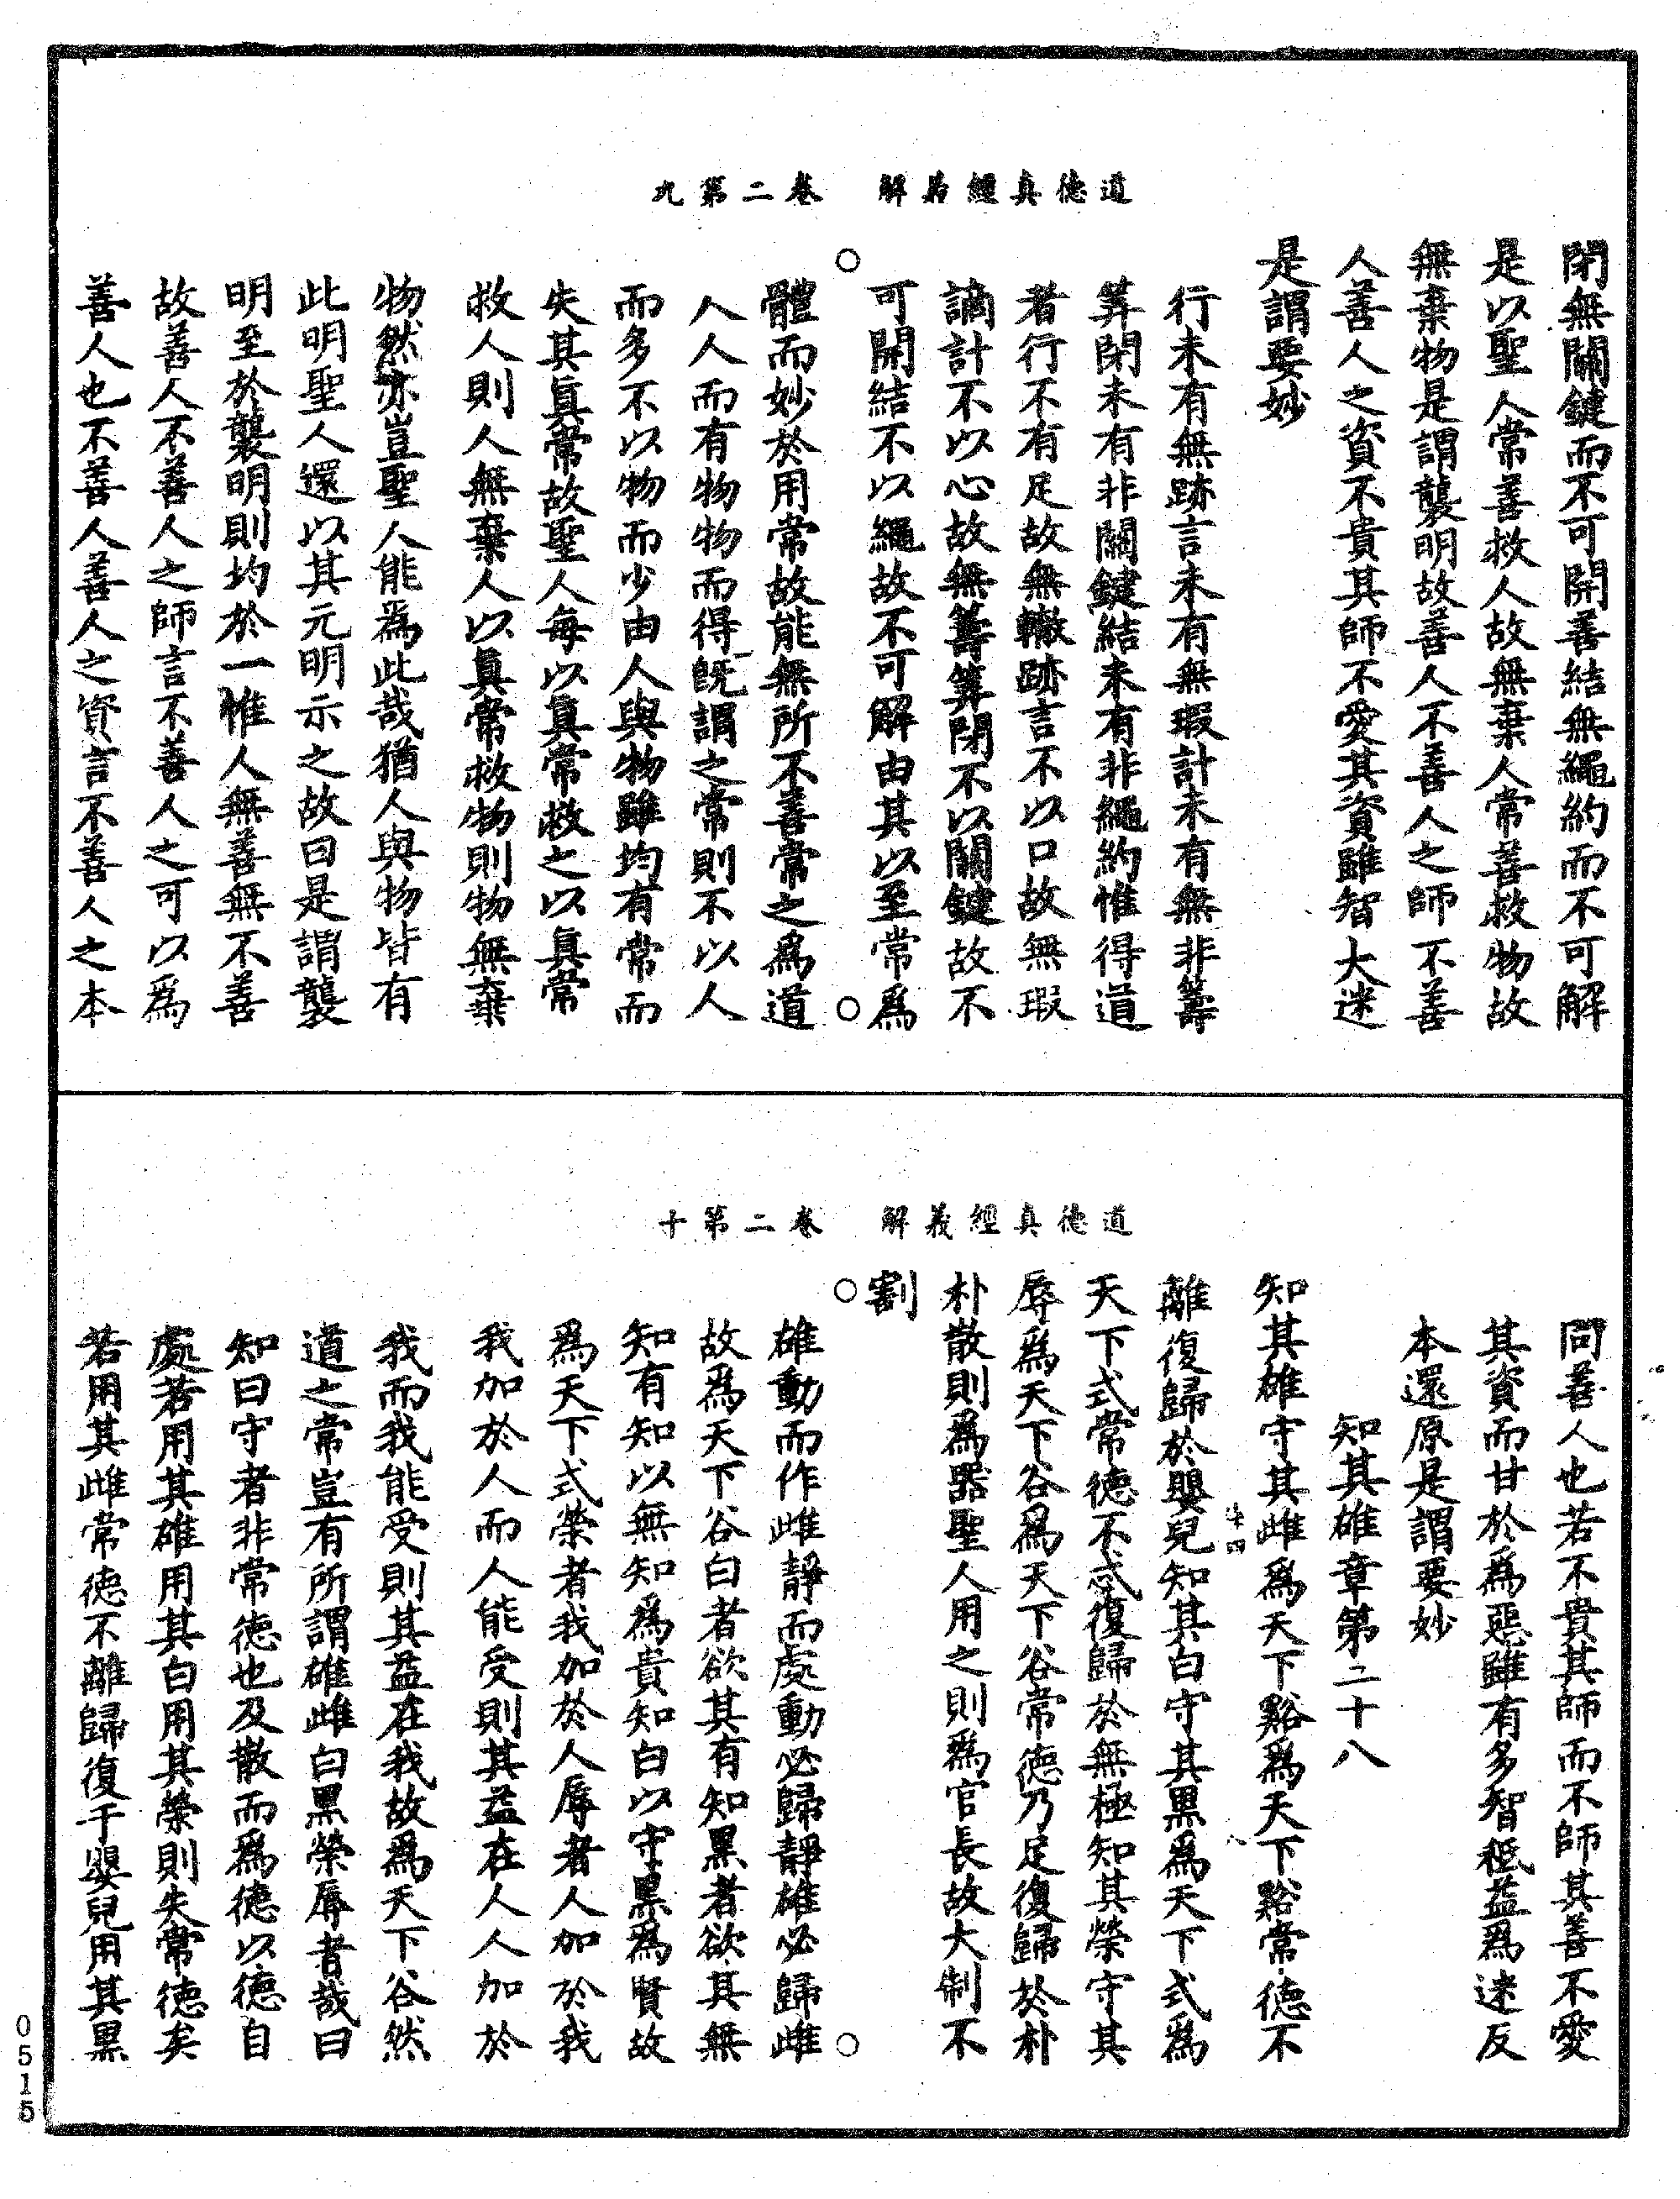 道德真經義解　卷二第九
閉無關鍵而不可開善結無繩約而不可解
是以聖人常善救人故無棄人常善救物故
無棄物是謂襲明故善人不善人之師不善
人善人之資不貴其師不愛其資雖智大迷
是謂要妙
行未有無跡言未有無瑕計未有無非籌
筭閉未有非關鍵結未有非繩約惟得道
者行不有足故無轍跡言不以口故無瑕
謫計不以心故無籌筭閉不以關鍵故不
可開結不以繩故不可解由其以至常爲
體而妙於用常故能無所不善常之爲道
人人而有物物而得既謂之常則不以人
而多不以物而少由人與物雖均有常而
失其真常故聖人每以真常救之以真常
救人則人無棄人以真常救物則物無棄
物然亦豈聖人能爲此哉猶人與物皆有
此明聖人還以其元明示之故曰是謂襲
明至於襲明則均於一惟人無善無不善
故善人不善人之師言不善人之可以爲
善人也不善人善人之資言不善人之本
道德真經義解　卷二第十
同善人也若不貴其師而不師其善不愛
其資而甘於爲惡雖有多智秪益爲迷反
本還原是謂要妙
知其雄章第二十八
知其雄守其雌爲天下谿爲天下谿常德不
離復歸於嬰兒知其白守其黑爲天下式爲
天下式常德不忒復歸於無極知其榮守其
辱爲天下谷爲天下谷常德乃足復歸於朴
朴散則爲器聖人用之則爲官長故大制不
割
雄動而作雌靜而處動必歸靜雄必歸雌
故爲天下谷白者欲其有知黑者欲其無
知有知以無知爲貴知白以守黑爲賢故
爲天下式榮者我加於人辱者人加於我
我加於人而人能受則其益在人人加於
我而我能受則其益在我故爲天下谷然
道之常豈有所謂雄雌白黑榮辱者哉曰
知曰守者非常德也及散而爲德以德自
處若用其雄用其白用其榮則失常德矣
若用其雌常德不離歸復于嬰兒用其黑
0515